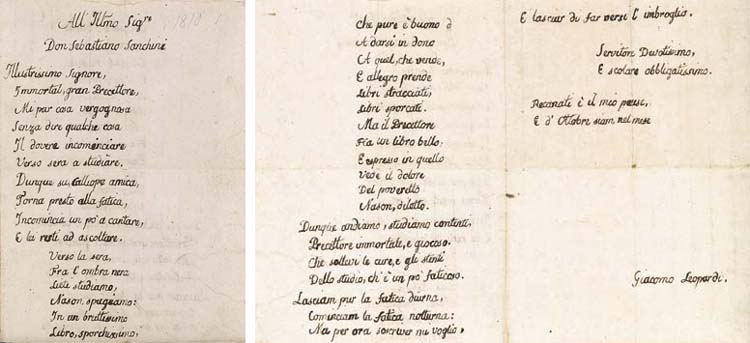 All' Illmo Sigre
1810
Don Sebastiano Sanchini
Illustrissimo Signore,
Immortal, gran Precettore,
Mi par cosa vergognosa
Senza dire qualche cosa
Il dovere incominciare
Verso sera a studiare.
Dunque su, Calliope amica,
Torna presto alla fatica,
Incomincia un pò a cantare,
E lei resti ad ascoltare.
Verso la sera,
Fra l'ombra nera
Lieti studiamo,
Nason spieghiamo:
In un bruttissimo
Libro, sporchissimo,
Che pure è buono
A darsi in dono
A quel, che vende,
E allegro prende
Libri stracciati,
Libri sporcati.
Ma il Precettore
Ha un libro bello;
E spesso in quello
Vede il dolore
Del poverello
Nason, diletto.
Dunque andiamo, studiamo contenti,
Precettore immortale, e giocoso.
Che sollevi le cure, e gli stenti
Dello studio, ch'è un pò faticoso.
Lasciam pur la fatica diurna,
Cominciam la fatica notturna:
Ma per ora scriver non voglio,
E lasciar di far versi l'imbroglio.
Servitore Devotissimo,
E scolare obbligatissimo.
Recanati è il mio paese,
E d' Ottobre siam nel mese
Giacomo Leopardi.